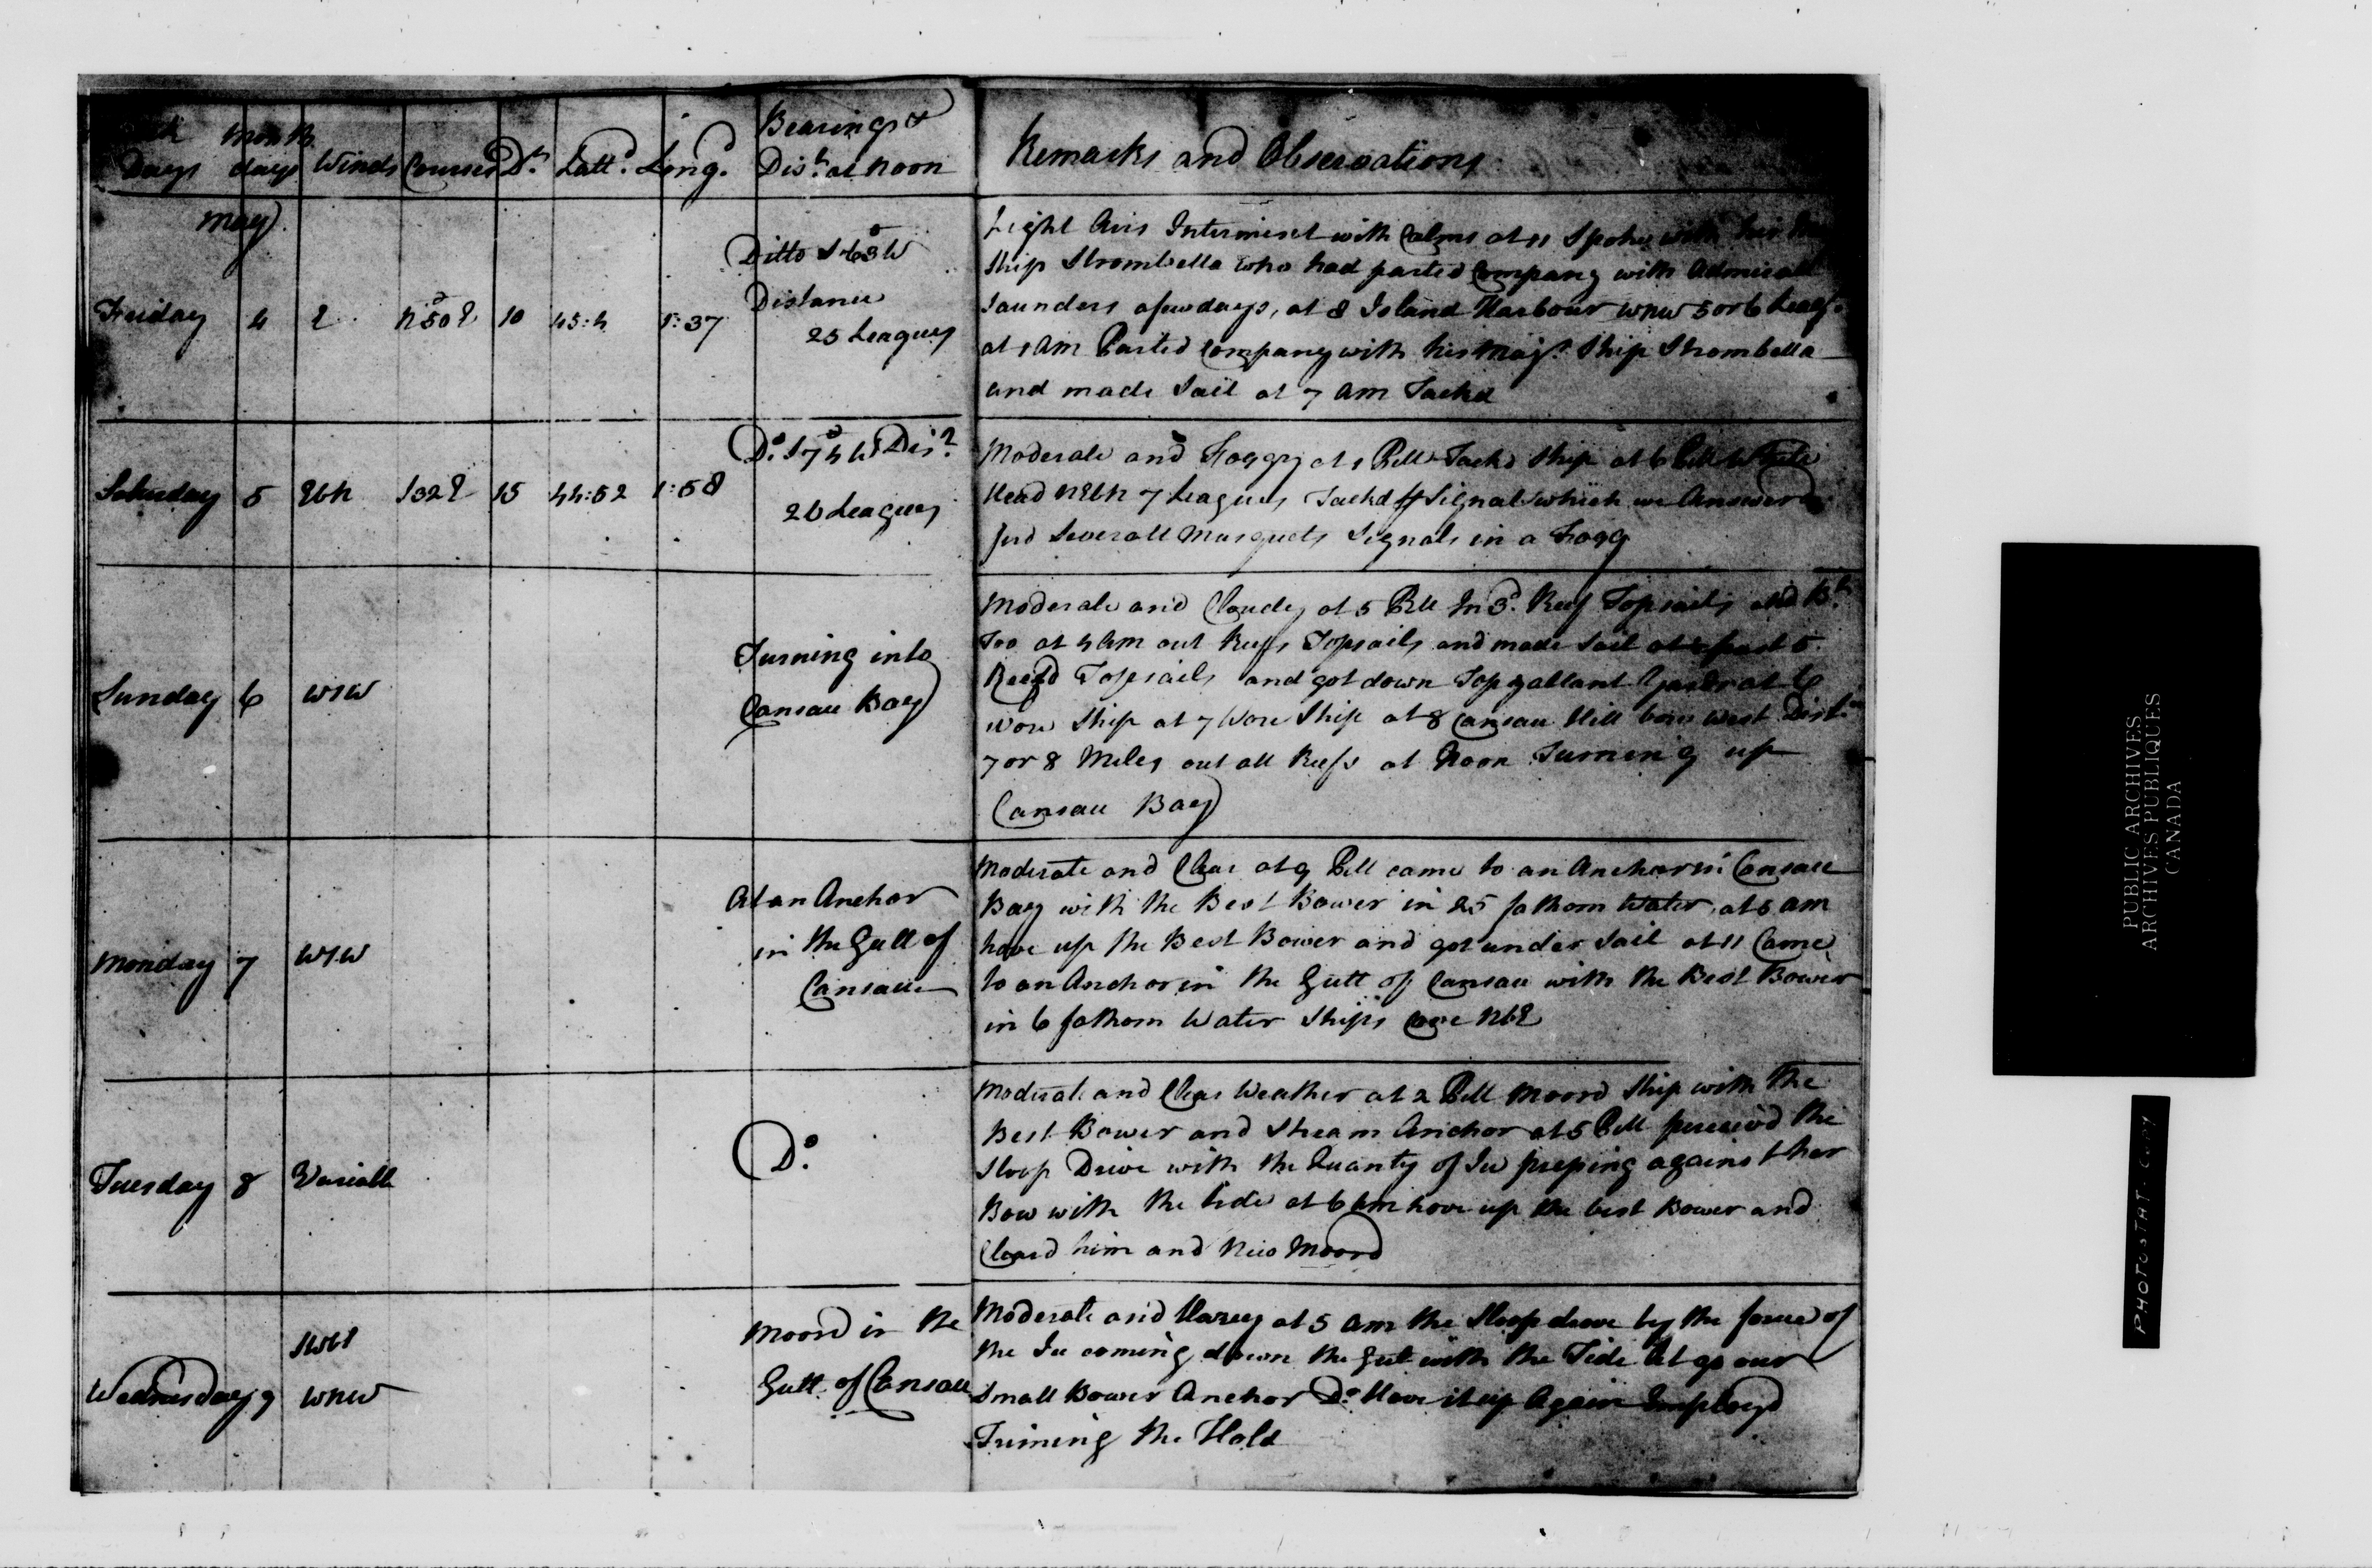 Month
Days days Winds Courses Dt. Lattd. Longd. Bearings &
Dist. at Noon
Remarks and Observations
May
Friday 4 E N 50 E 10 45:4 1:37
Ditto S 63 W
Distance
25 Leagues
Light Airs Intermixt with Calms at 11 Spoke with his
Ship Strombella who had parted Company with Admirall
Saunders a few days, at 8 Island Harbour WNW 5 or 6 Leags.
at 1 AM Parted Company with his Majs. Ship Strombella
and made Sail at 7 AM Tackd
Saturday 5 EbN S32E 15 44:52 1:58
Do. S 74 W Dis.
26 Leagues
Moderate and Foggy at 1 PM Tackd Ship at 6 PM White
Head NEbN 7 Leagues Tackd Signal which we Answerd
fird Severall Musquets Signals in a Fogg
Sunday 6 WSW
Turning into
Cansau Bay
Moderate and Cloudy at 5 PM In 3d. Reef Topsails and Bt.
Too at 4 AM out Reefs Topsails and made Sail at past 5
Reefd Topsails and got down Topgallant Yards at 6
wore Ship at 7 Wore Ship at 8 Cansau Hill bore West Distn.
7 or 8 Miles out all Reefs at Noon Turning up
Cansau Bay
Monday 7 WSW
At an Anchor
in the Gutt of
Cansau
Moderate and Clear at 9 PM came to an Anchor in Cansau
Bay with the Best Bower in 25 fathom Water, at 5 AM
hove up the Best Bower and got under Sail at 11 Came
to an Anchor in the Gutt of Cansau with the Best Bower
in 6 fathom Water Ships Cove NbE
Tuesday 8 Variable
Do.
Moderate and Clear Weather at 2 PM Moord Ship with the
Best Bower and Stream Anchor at 5 PM perceivd the
Sloop Drive with the Quanty of Ice preping against her
Bow with the tide at 6 AM hove up the best Bower and
Cleard him and New Moord
Wednesday 9 SWbS
WNW
Moord in the
Gutt of Cansau
Moderate and Hazey at 5 AM the Sloop drove by the force of
the Ice coming down the Gut with the Tide let go our
Small Bower Anchor Do. Hove it up Again Employd
Triming the Hold
PUBLIC ARCHIVES
ARCHIVES PUBLIQUES
CANADA
PHOTOSTAT-COPY